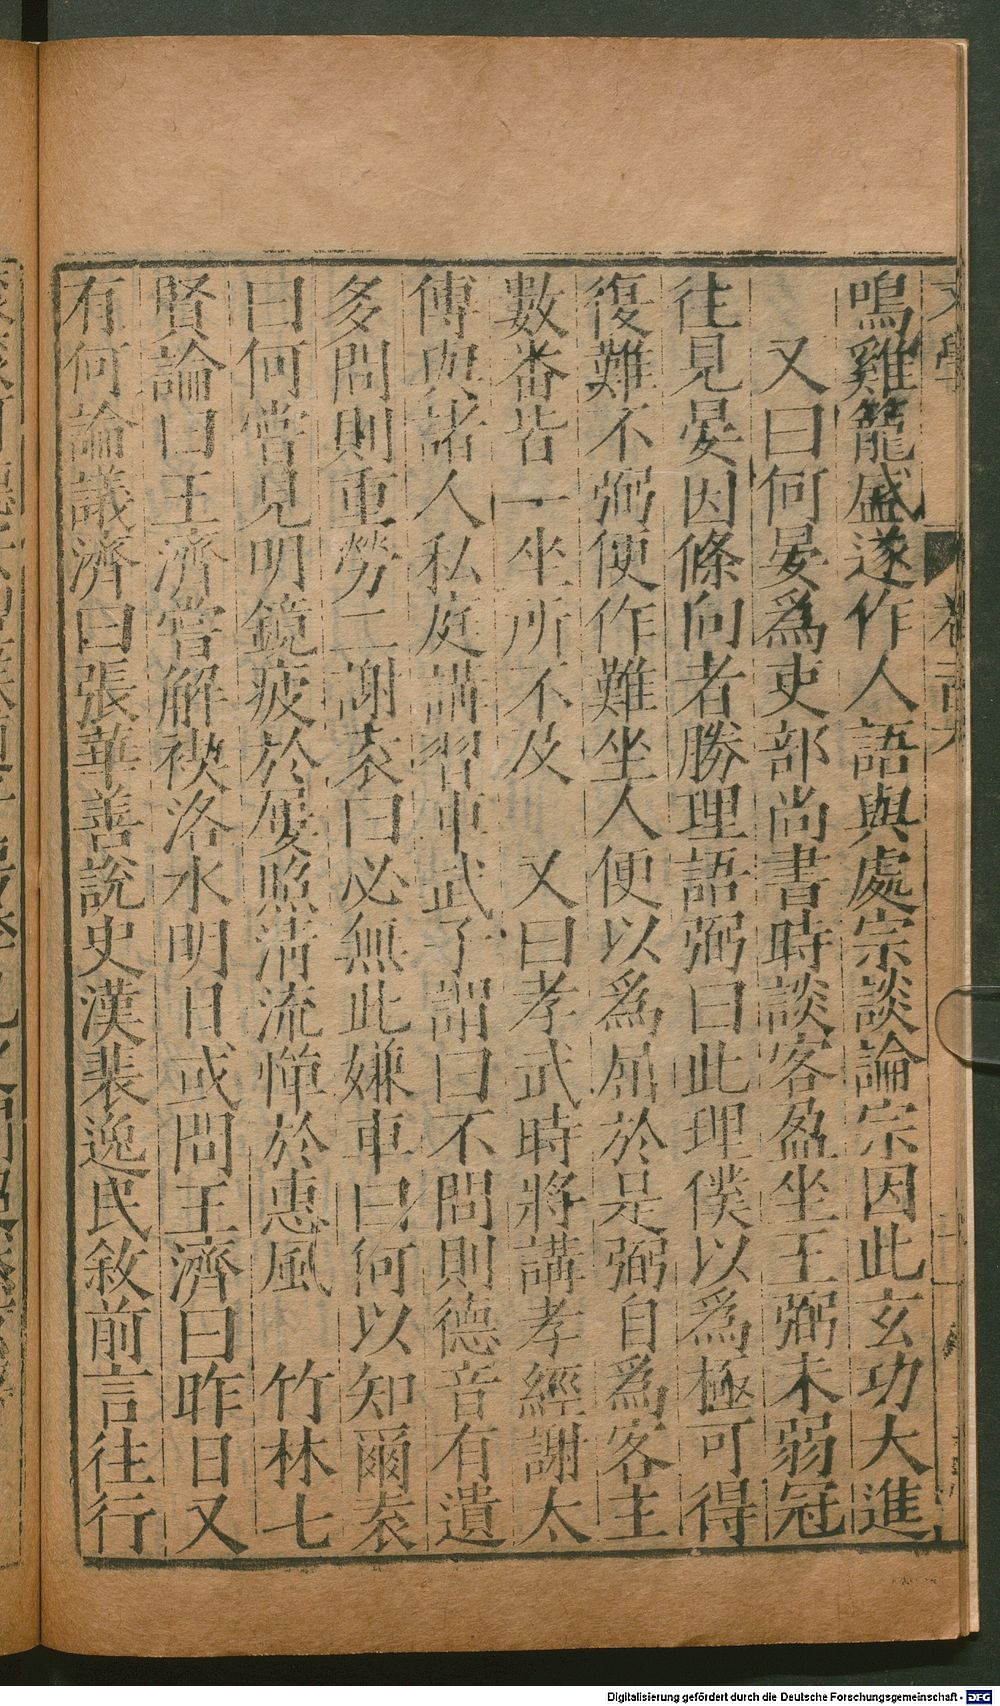 鳴雞籠盛遂作人語與處宗談論宗因此玄功大進
又曰何晏爲吏部尚書時談客盈坐王弼未弱冠
往見晏因條向者勝理語弼曰此理僕以爲極可得
復難不弼便作難坐人便以爲屈於是弼自爲客主
數番皆一坐所不及 又曰孝武時將講孝經謝太
傅與諸人私庭講習車武子謂曰不問則德音有遺
多問則重勞二謝袁曰必無此嫌車曰何以知爾袁
曰何嘗見明鏡疲於屢照清流憚於惠風 竹林七
賢論曰王濟嘗解禊洛水明日或問王濟曰昨日又
有何論議濟曰張華善說史漢裴逸民敘前言往行
Digitalisierung gefördert durch die Deutsche Forschungsgemeinschaft - DFG